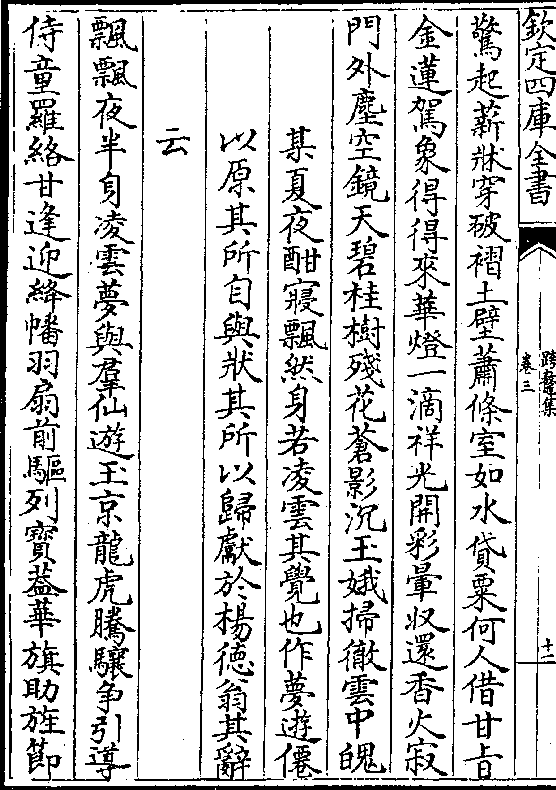 欽定四庫全書
跨鼇集
卷三
十一
驚起薪牀穿破褶土壁蕭條室如水貸粟何人借甘旨
金蓮駕象得得來華燈一滴祥光開彩暈收還香火寂
門外塵空鏡天碧桂樹殘花蒼影沉玉娥掃徹雲中魄
某夏夜酣寢飄然身若凌雲其覺也作夢遊僊
以原其所自與狀其所以歸獻於楊德翁其辭
云
飄飄夜半身凌雲夢與羣仙遊玉京龍虎騰驤争引導
侍童羅絡甘逢迎絳幡羽扇前驅列寳葢華旗助旌節